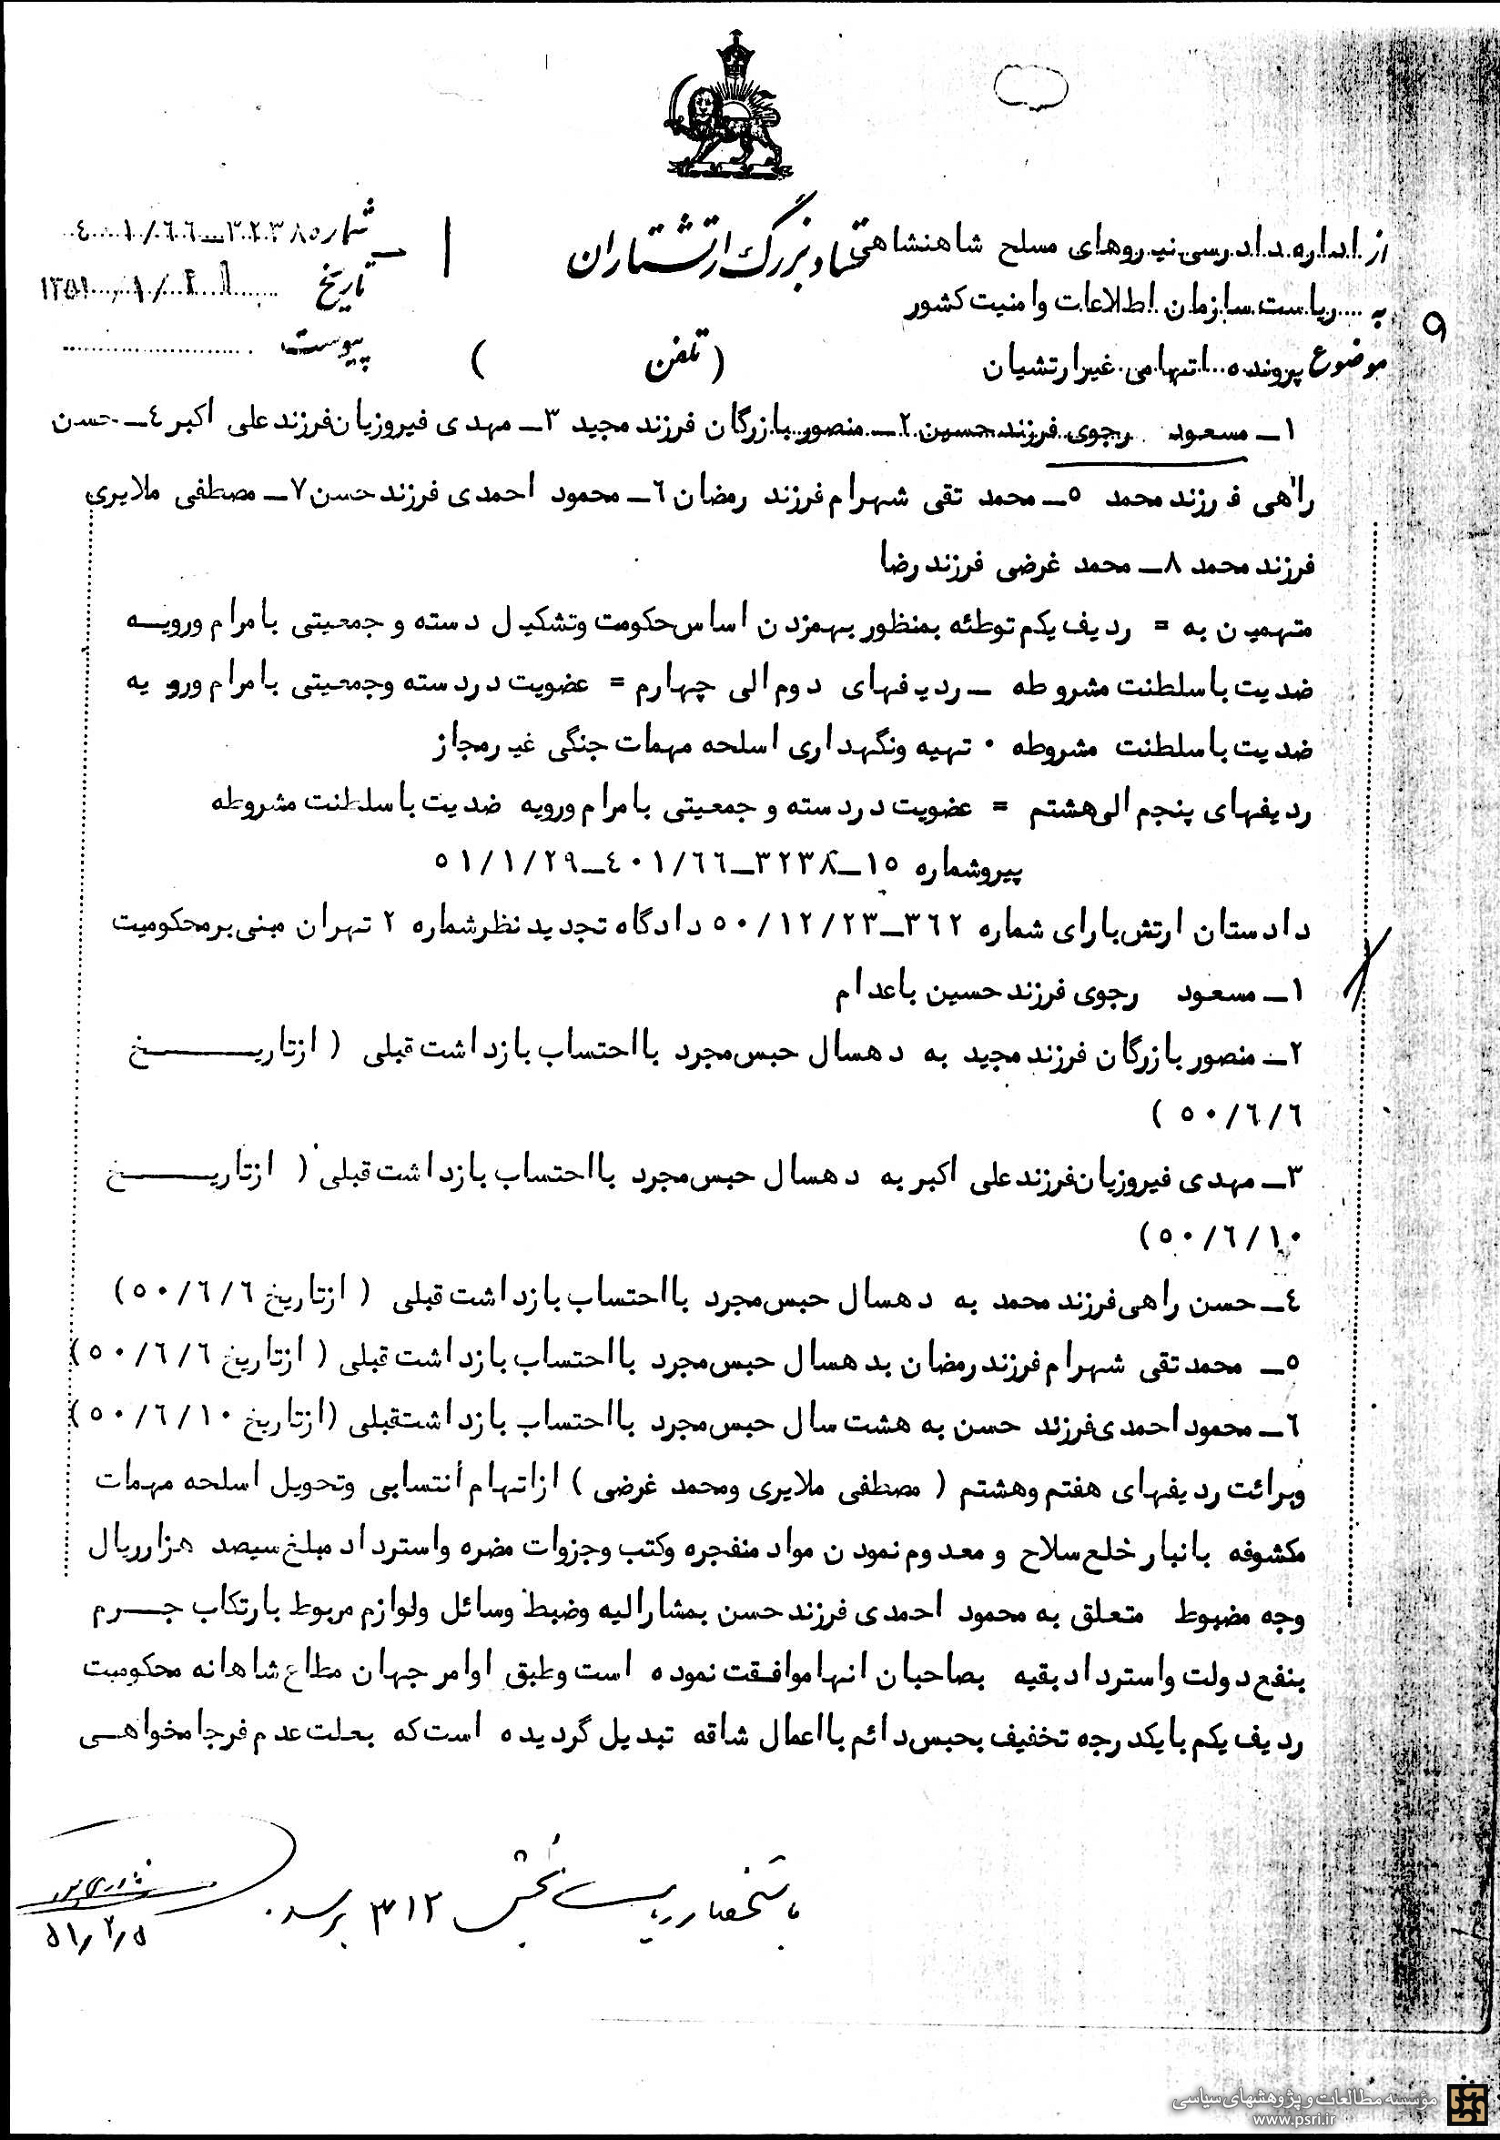 ستاد بزرگ ارتشتاران
از اداره دادرسی نیروهای مسلح شاهنشاهی
به ریاست سازمان اطلاعات و امنیت کشور
موضوع پرونده اتهامی غیرارتشیان
شماره ۳۲۳۸۵ـ۴۰۱/۶۶
تاریخ ۱۳۵۱/۱/
پیوست
( تلفن )
۱ـ مسعود رجوی فرزند حسین ۲ـ منصور بازرگان فرزند مجید ۳ـ مهدی فیروزیان فرزند علی اکبر ۴ـ حسن
راهی فرزند محمد ۵ـ محمد تقی شهرام فرزند رمضان ۶ـ محمود احمدی فرزند حسن ۷ـ مصطفی ملایری
فرزند محمد ۸ـ محمد غرضی فرزند رضا
متهمین به = ردیف یکم توطئه بمنظور بهمزدن اساس حکومت وتشکیل دسته و جمعیتی با مرام ورویه
ضدیت با سلطنت مشروطه ـ ردیفهای دوم الی چهارم = عضویت در دسته وجمعیتی با مرام ورویه
ضدیت با سلطنت مشروطه ۰ تهیه ونگهداری اسلحه مهمات جنگی غیرمجاز
ردیفهای پنجم الی هشتم = عضویت در دسته و جمعیتی با مرام ورویه ضدیت با سلطنت مشروطه
پیروشماره ۱۵ـ۳۲۳۸ـ۴۰۱/۶۶ـ۵۱/۱/۲۹
دادستان ارتش بارای شماره ۳۶۲ـ۵۰/۱۲/۲۳ دادگاه تجدید نظر شماره ۲ تهران مبنی بر محکومیت
۱ـ مسعود رجوی فرزند حسین باعدام
۲ـ منصور بازرگان فرزند مجید به دهسال حبس مجرد با احتساب بازداشت قبلی ( ازتاریخ
۵۰/۶/۶ )
۳ـ مهدی فیروزیان فرزند علی اکبر به دهسال حبس مجرد با احتساب بازداشت قبلی ( ازتاریخ
۵۰/۶/۱۰)
۴ـ حسن راهی فرزند محمد به دهسال حبس مجرد با احتساب بازداشت قبلی ( ازتاریخ ۵۰/۶/۶)
۵ـ محمد تقی شهرام فرزند رمضان بدهسال حبس مجرد با احتساب بازداشت قبلی ( ازتاریخ ۵۰/۶/۶)
۶ـ محمود احمدی فرزند حسن به هشت سال حبس مجرد با احتساب بازداشتقبلی (ازتاریخ ۵۰/۶/۱۰)
وبرائت ردیفهای هفتم وهشتم ( مصطفی ملایری ومحمد غرضی ) ازاتهام انتسابی وتحویل اسلحه مهمات
مکشوفه بانبار خلع سلاح و معدوم نمودن مواد منفجره وکتب وجزوات مضره واسترداد مبلغ سیصد هزارریال
وجه مضبوط متعلق به محمود احمدی فرزند حسن بمشارالیه وضبط وسائل ولوازم مربوط بارتکاب جرم
بنفع دولت واسترداد بقیه بصاحبان انها موافقت نموده است وطبق اوامر جهان مطاع شاهانه محکومیت
ردیف یکم با یکدرجه تخفیف بحبس دائم با اعمال شاقه تبدیل گردیده است که بعلت عدم فرجامخواهی
باستحضار ریاست بخش ۳۱۲ برسد.
۵۱/۲/۵
۹
مؤسسه مطالعات و پژوهشهای سیاسی
www.psri.ir